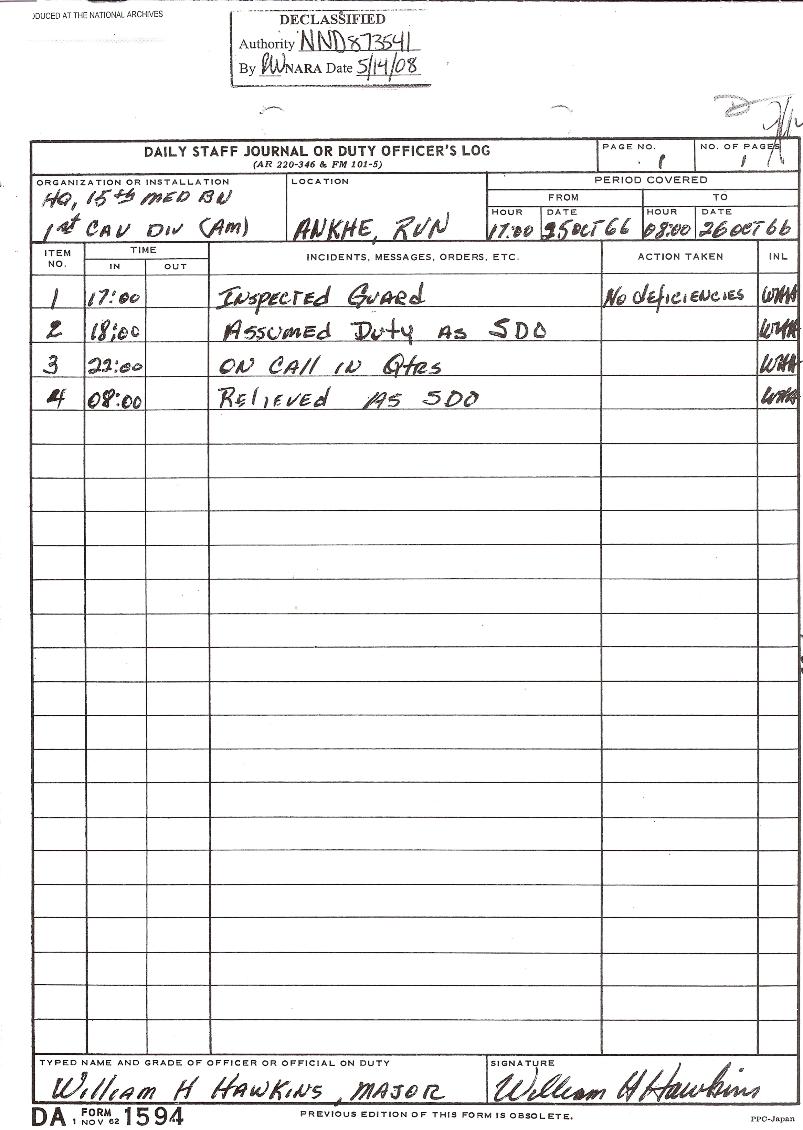 ODUCED AT THE NATIONAL ARCHIVES
DECLASSIFIED
Authority NND873541
By NARA Date 5/14/08
DAILY STAFF JOURNAL OR DUTY OFFICER'S LOG
(AR 220-346 & FM 101-5)
PAGE NO.
1
NO. OF PAGES
1
ORGANIZATION OR INSTALLATION
HQ, 15th MED BN
1st CAV DIV (AM)
LOCATION
ANKHE, RVN
PERIOD COVERED
FROM
TO
HOUR DATE HOUR DATE
17:00 25 OCT 66 08:00 26 OCT 66
ITEM NO.
TIME
IN OUT
INCIDENTS, MESSAGES, ORDERS, ETC.
ACTION TAKEN
INL
1 17:00 INSPECTED GUARD No deficiencies WHH
2 18:00 ASSUMED DUty AS SDO WHH
3 22:00 ON CAll IN Qtrs WHH
4 08:00 RELIEVED AS SDO WHH
TYPED NAME AND GRADE OF OFFICER OR OFFICIAL ON DUTY
William H HAWKINS, MAJOR
SIGNATURE
William H Hawkins
DA FORM 1 NOV 62 1594
PREVIOUS EDITION OF THIS FORM IS OBSOLETE.
PPC-Japan